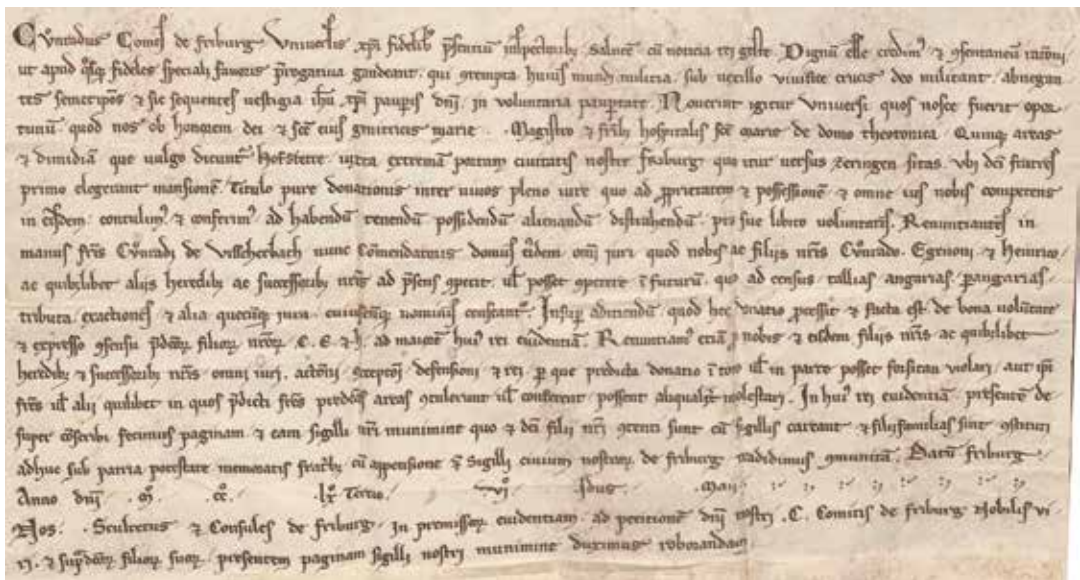 Cůnradus Comes de friburg Vniuersis xpi fidelib presentiū inspectorib; salutē cū noticia rei geste. Dignū esse credim9 ⁊ ꝯsentaneū racōni
ut apud qosqꝫ fideles speciali fauoris prerogatiua gaudeant. qui ꝯtempta huius mundi militia. sub uexillo viuifice crucis deo militant. abnegan
tes semetipōs ⁊ sic sequentes uestigia ihū xpi paupis dnī. in voluntaria paupertate. Nouerint igitur Vniuersi quos nosce fuerit opor
tunū. quod nos ob honorem dei ⁊ scē eius genitricis marie. Magistro ⁊ frīb; hospitalis scē marie de domo theotonica Quinqꝫ areas
⁊ dimidiā que uulgo dicunt᷑ Hofstette. iuxta extremā portam ciuitatis nostre friburg qua itur uersus zeringen sitas. vbi dcī fratres
primo elegerunt mansionē. Titulo pure donationis inter uiuos pleno iure quo ad ꝓprietatem ⁊ possessionē ⁊ omne ius nobis competens
in eisdem. contulim9 ⁊ conferim9 ad habendū tenendū possidendū alienandū distrahendū. pro sue libito voluntatis. Renuntiantes in
manus frīs Cůnradi de Vischerbach nunc Cōmendatoris domus eidem. omī iuri quod nobis ac filijs nrīs Cůnrado. Egenoni ⁊ Heinrico
ac quibuslibet alijs heredib; ac successorib; nrīs ad presens ꝯpetit uł posset ꝯpetere ī futurū. quo ad census tallias angarias. ꝑangarias.
tributa exactiones ⁊ alia quecūqꝫ iura. cuiuscūqꝫ nominis censeant᷑. Insuꝑ adiciendū quod hec donatio processit ⁊ facta est. de bona volūtate
⁊ expresso ꝯsensu predcōꝝ filioꝝ nrōꝝ. C. E. ⁊ h. ad maiorē hui9 rei euidentiā. Renuntiam9 etiā ꝓ nobis ⁊ eisdem filijs nrīs ac quibuslibet
heredib; ⁊ successorib; nrīs omni iuri. actōni exceptōi defensioni ⁊ rei ꝑ que predicta donatio ī toto uł in parte posset forsitan violari. aut ipī
frēs uł alij quilibet in quos predicti frēs predcās areas ꝯtulerunt uł conferent possent aliqualit᷑ molestari. In hui9 rei euidentiā. presentē de
super cōscribi fecimus paginam ⁊ eam sigilli nrī munimine quo ⁊ dcī filij nrī ꝯtenti sunt cū sigillis careant ⁊ filijfamilias sint ꝯstituti
adhuc sub patria potestate memoratis fratrib; cū appensione ⁊ Sigilli ciuium nostroꝝ de friburg tradidimus ꝯmunitā. Datū friburg.
Anno dnī .m̊. .cc̊. .lx̊. Tertio. .vị̊. .Idus. .Maij.
Nos. Scultetus ⁊ Consules de friburg. In premissoꝝ euidentiam. ad petitionē dnī nostri .C. Comitis de friburg Nobilis vi
ri. ⁊ supradcōꝝ filioꝝ suoꝝ. presentem paginam sigilli nostri munimine duximus roborandam.